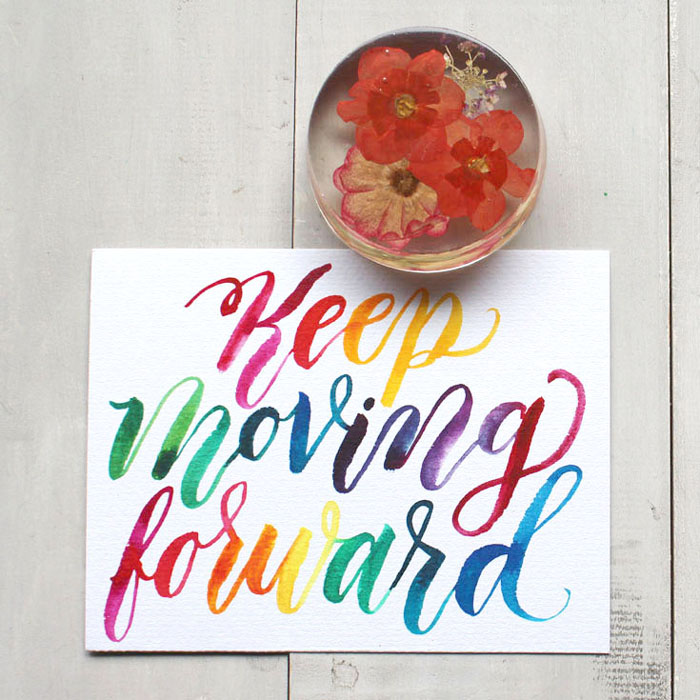 Keep
moving
forward